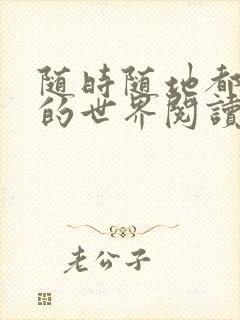 随時随地都
的世界閱讀
老公子